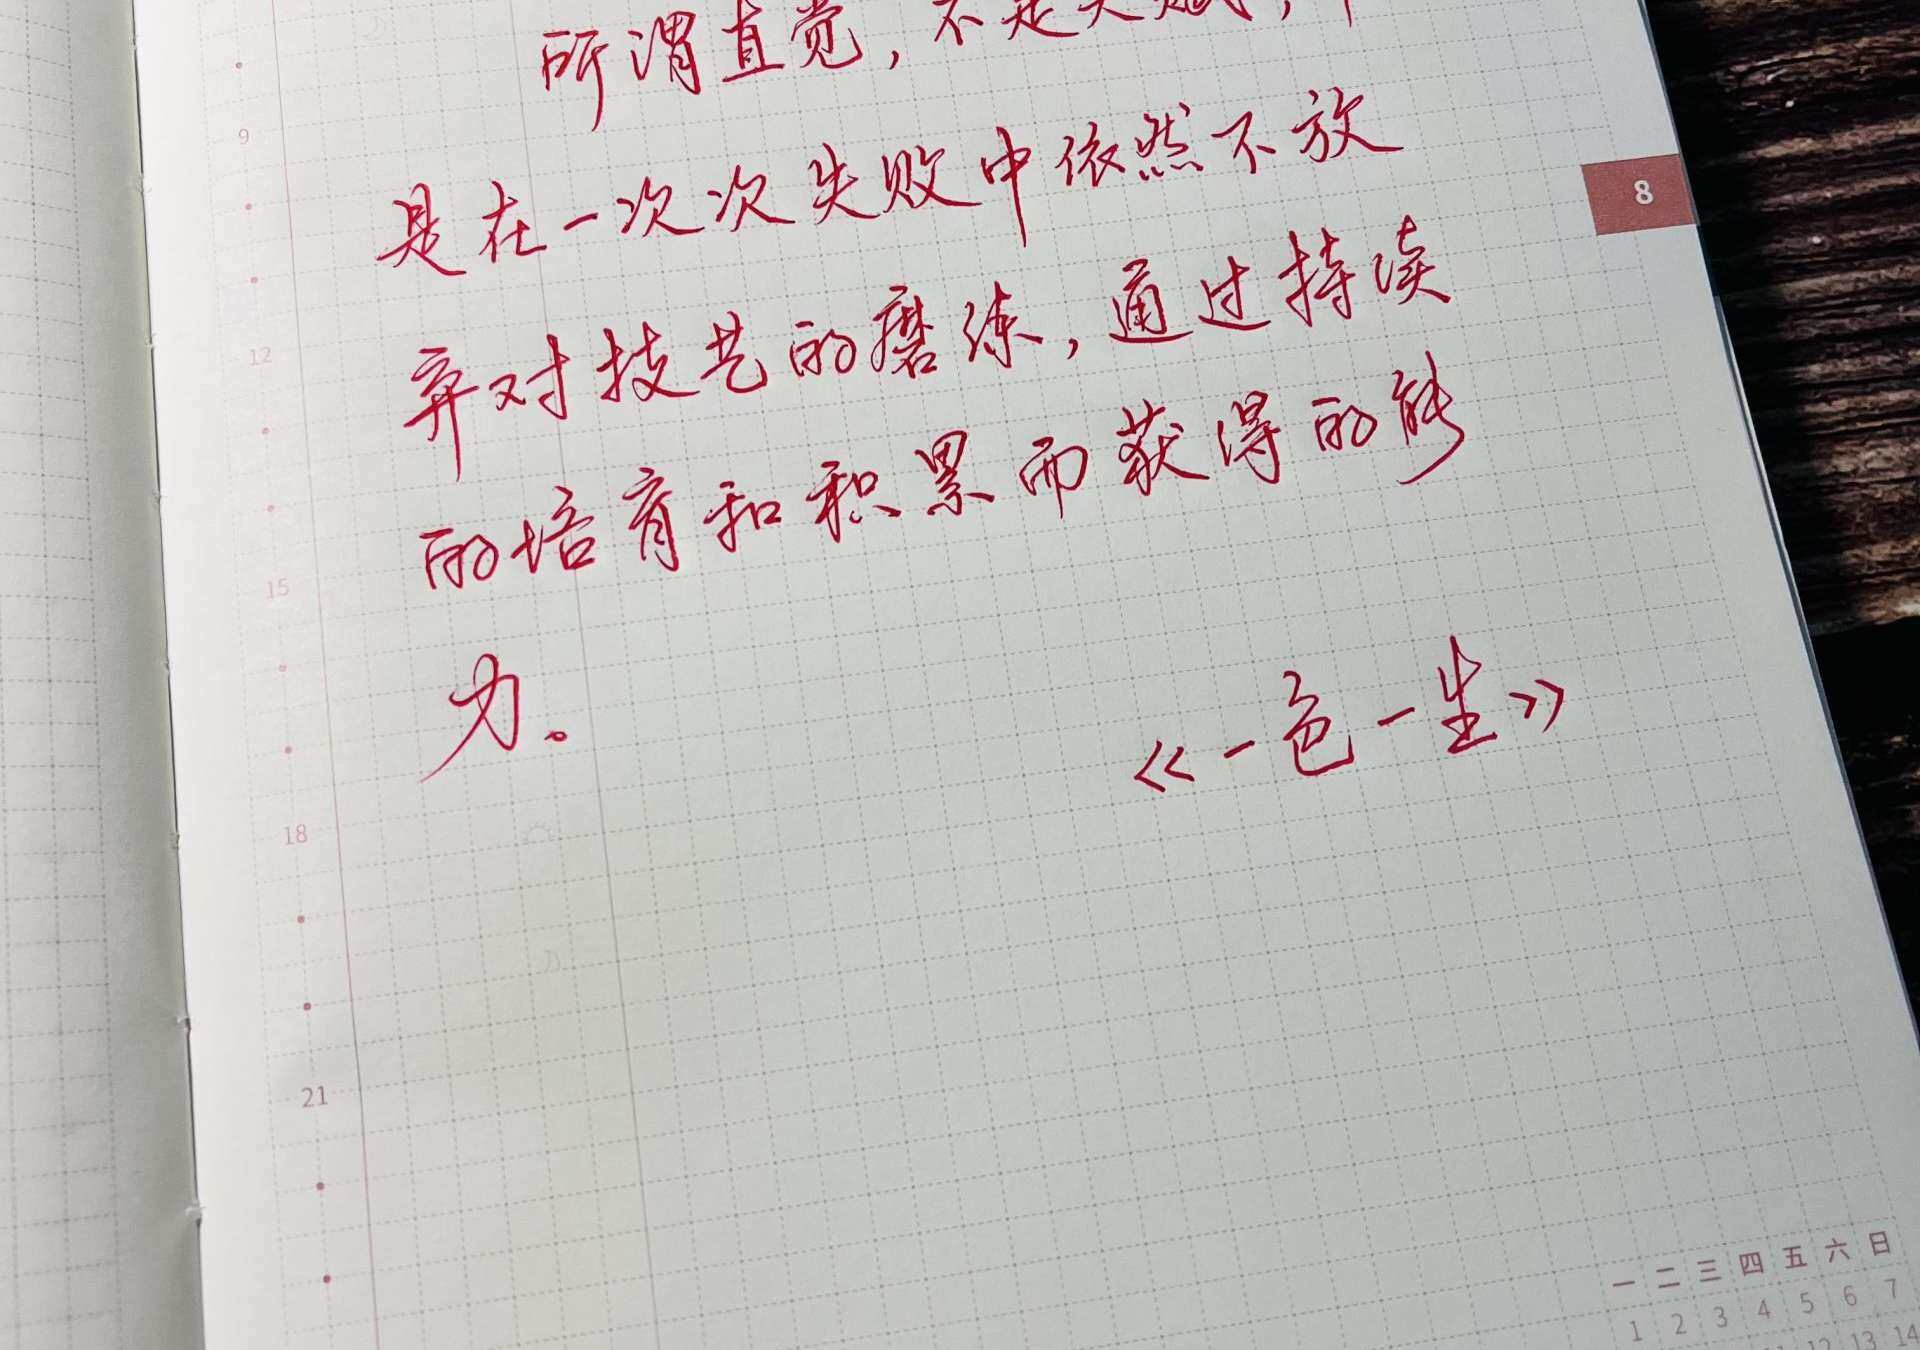 所谓直觉，不是天赋，
是在一次次失败中依然不放
弃对技艺的磨练，通过持续
的培育和积累而获得的能
力。
《一色一生》
8
9
12
15
18
21
一 二 三 四 五 六 日
1 2 3 4 5 6 7
12 13 14